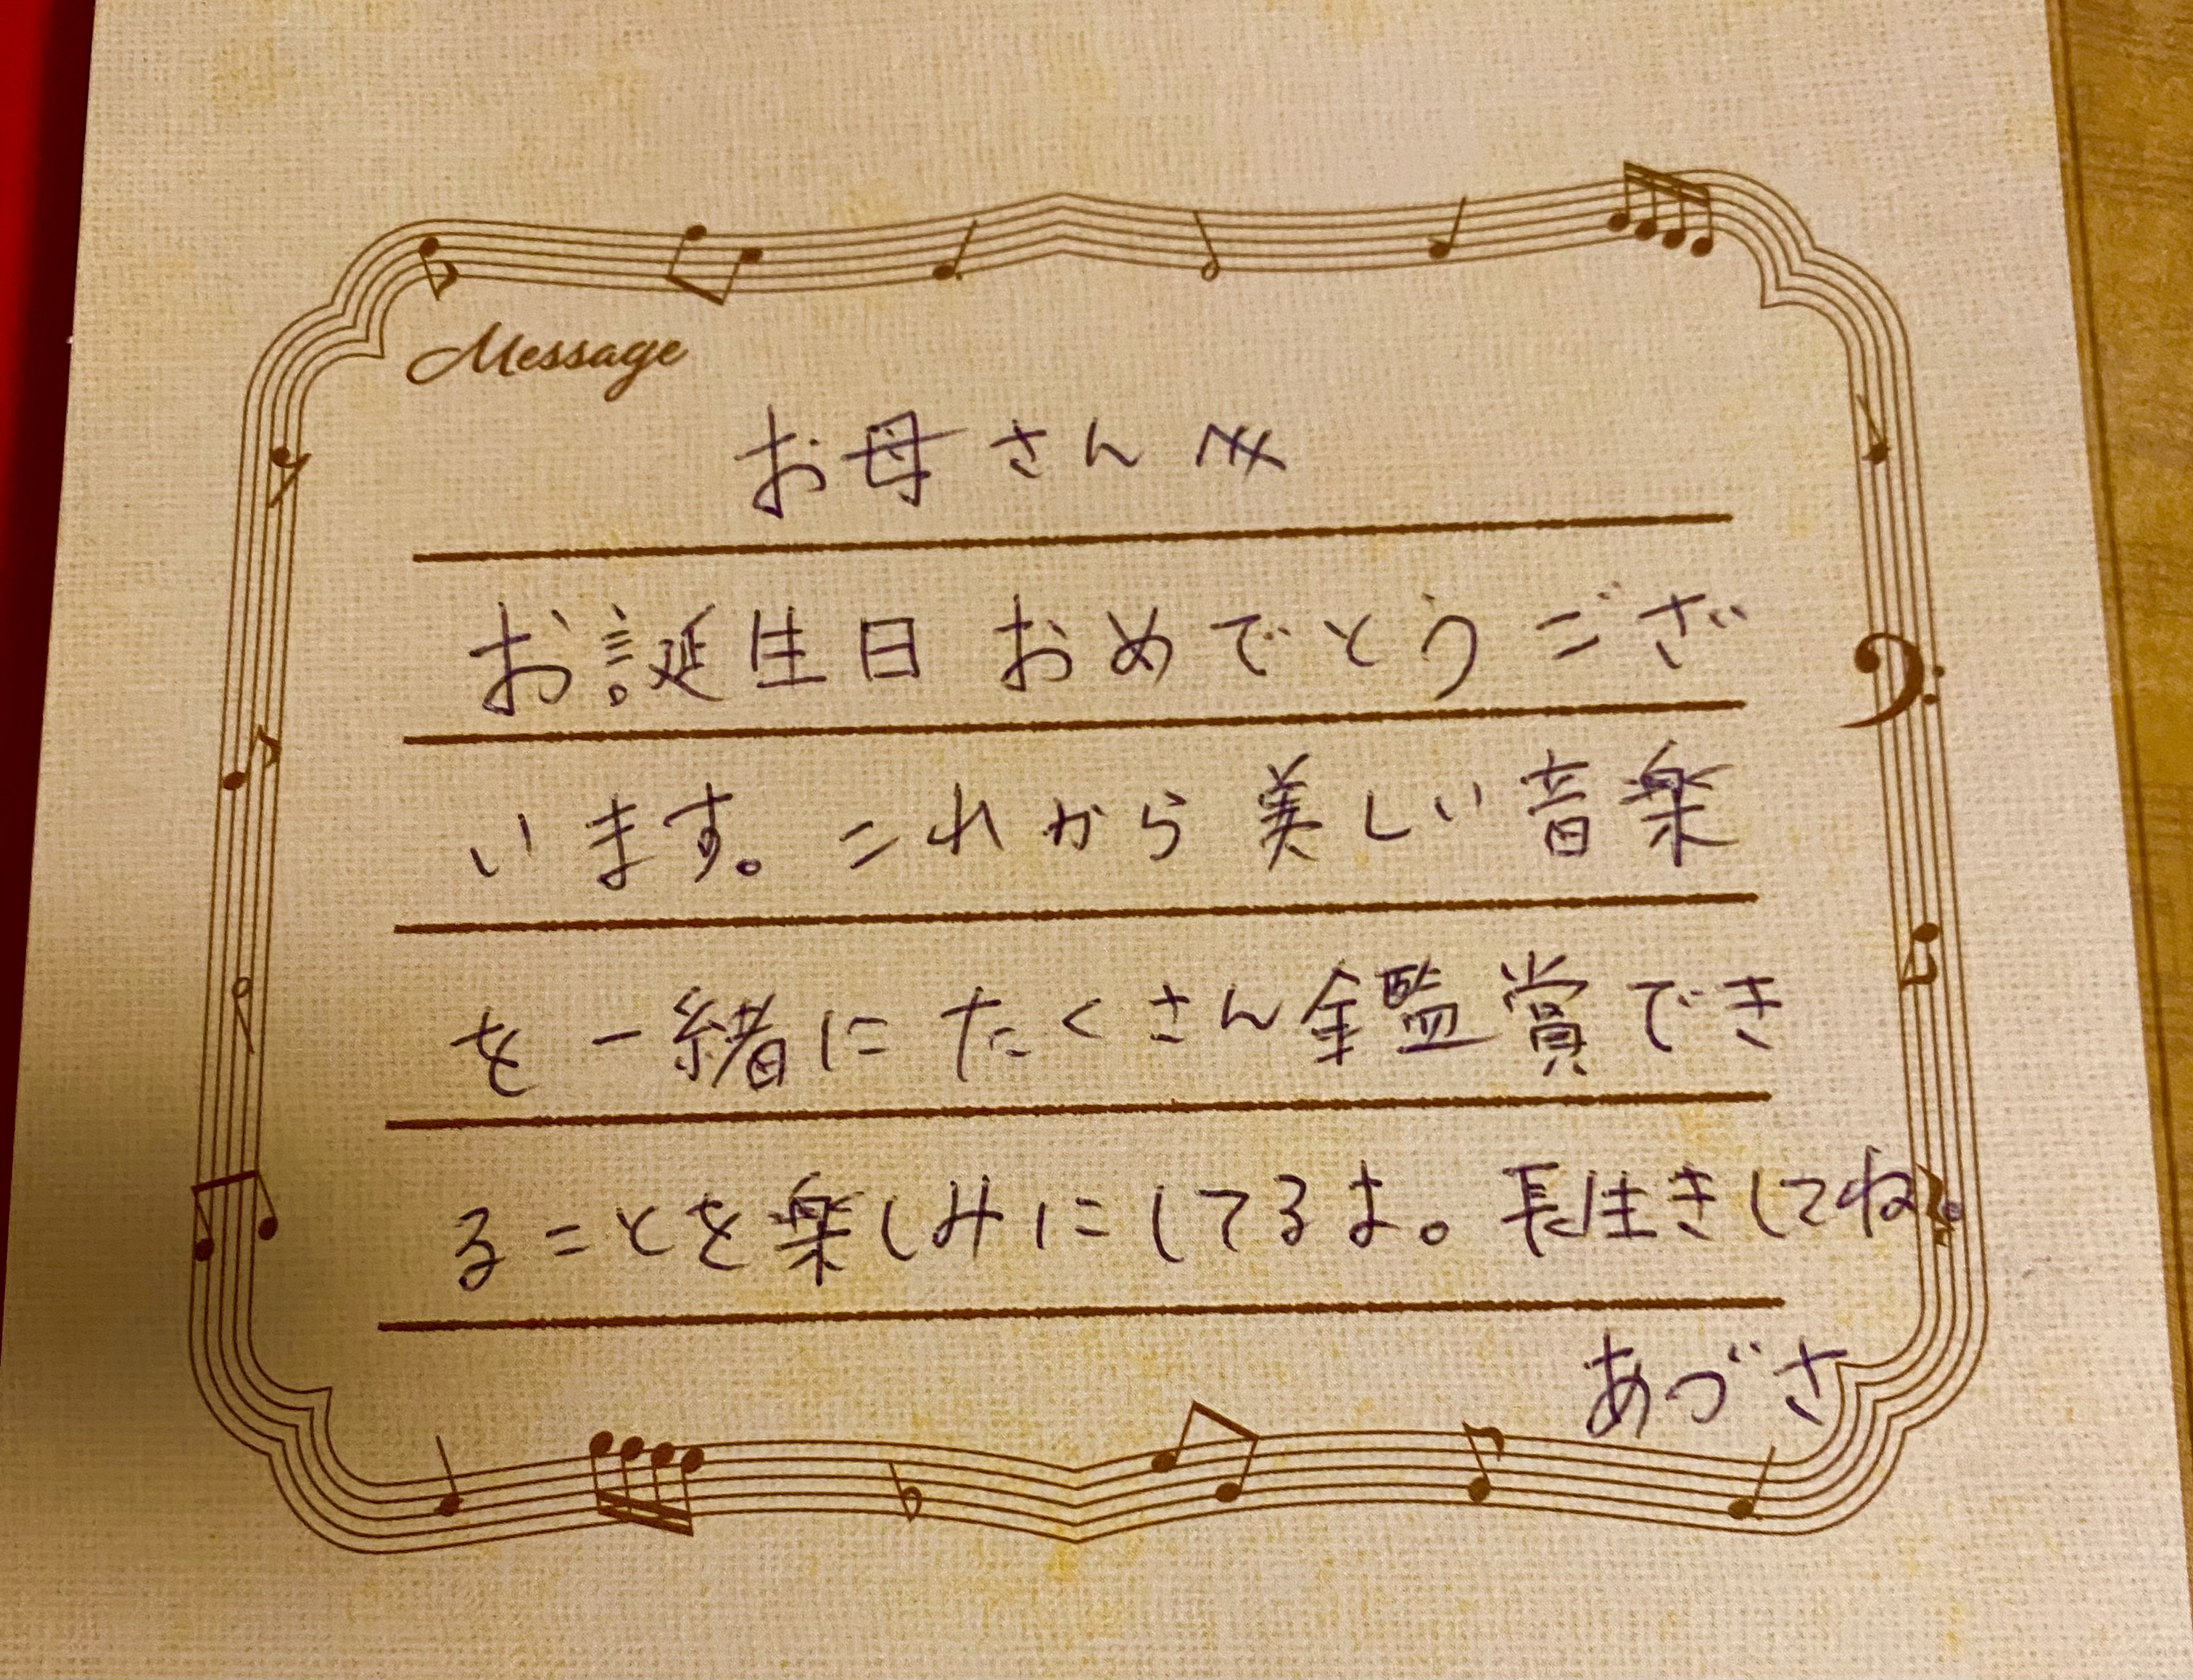 Message
お母さんへ
お誕生日おめでとうござ
います。これから美しい音楽
を一緒にたくさん鑑賞でき
ることを楽しみにしてるよ。長生きしてね。
あづさ